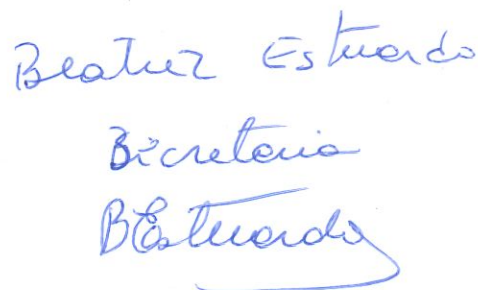 Beatriz Estuardo
Bicretaria
BEstuardo